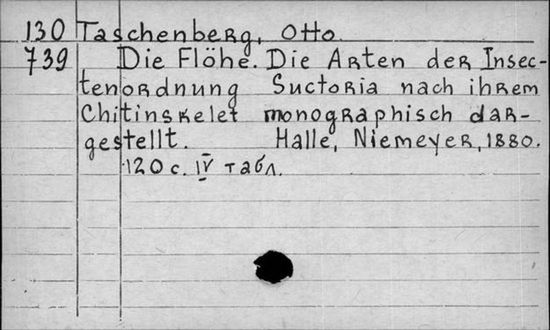 130 Taschenberg, Otto
739 Die Flöhe. Die Arten der Insec-
tenordnung Suctoria nach ihrem
Chitinskelet monographisch dar-
gestellt. Halle, Niemeyer, 1880.
120 с. IV табл.